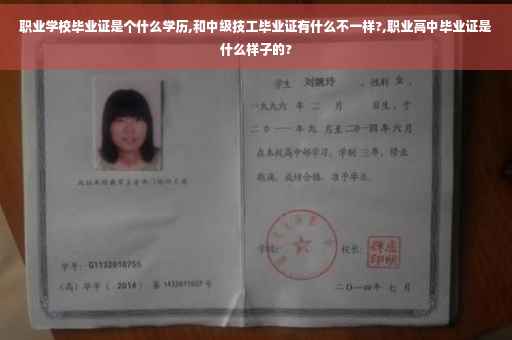 职业学校毕业证是个什么学历,和中级技工毕业证有什么不一样?,职业高中毕业证是
什么样子的?
学生 刘婉玲 ,性别 女 ,
一九九六 年 二 月 日生,于
二〇一一年九 月至二〇一四年六月
在本校高中部学习,学制 三年,修业
期满,成绩合格,准予毕业。
学号: G1132010755
学校: 校长:
(高)毕字( 2014 )第 1432011027 号
二〇一四年 七 月